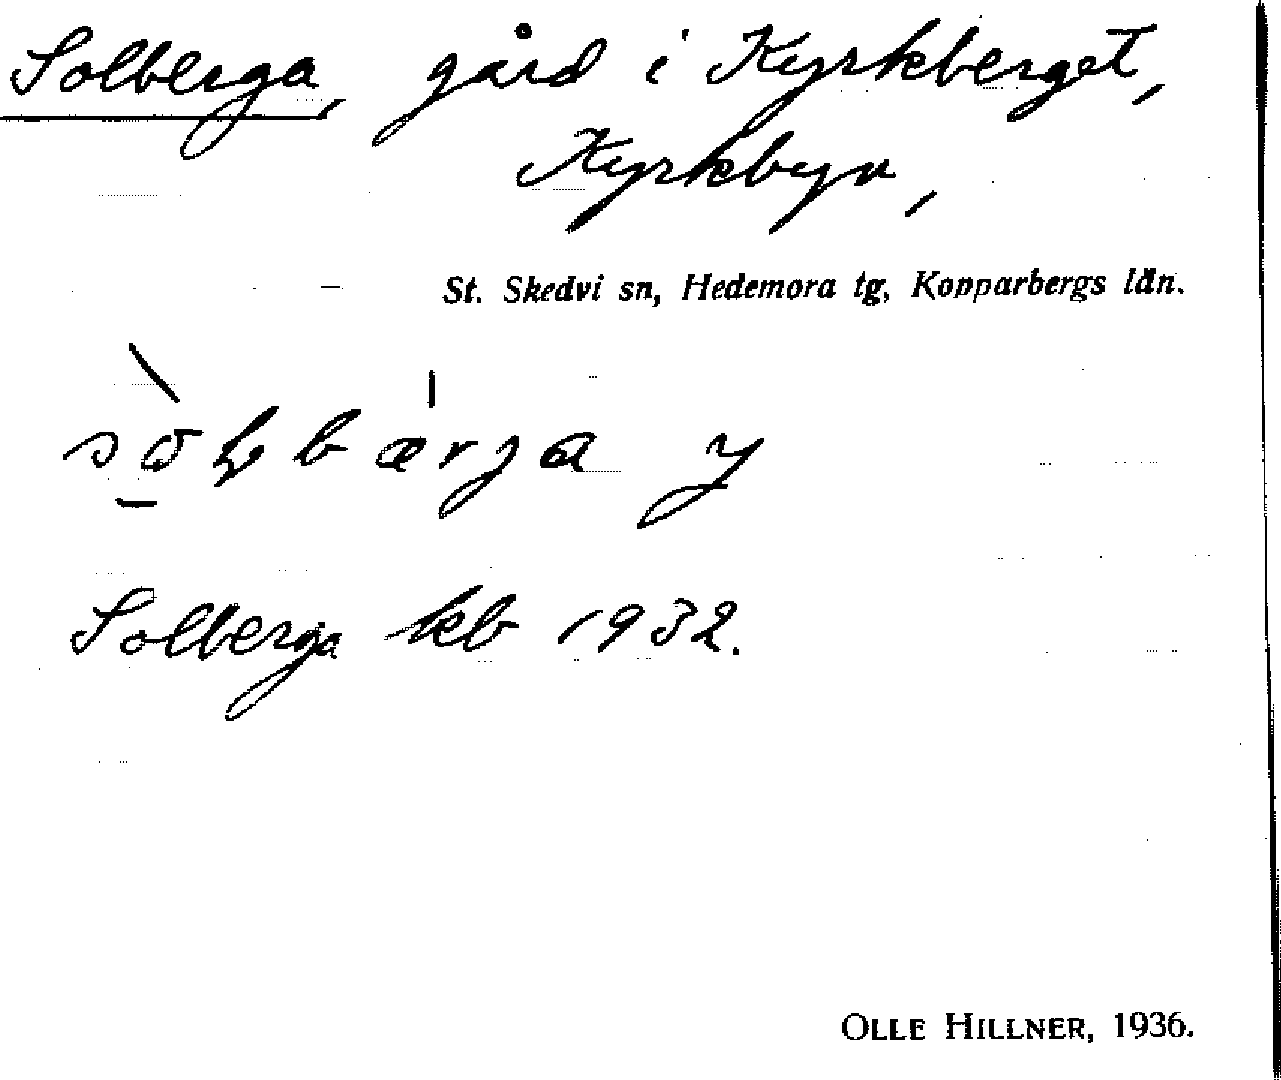 Solberga, gård i Kyrkberget,
Kyrkbyn,
St. Skedvi sn, Hedemora tg, Kopparbergs län.
Solberga kb 1932.
OLLE HILLNER, 1936.